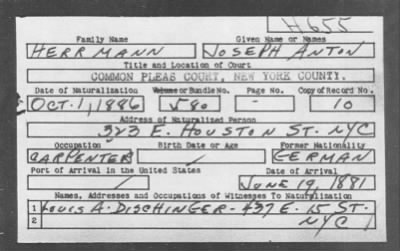 H655
Family Name Given Name or Names
HERRMANN JOSEPH ANTON
Title and Location of Court
COMMON PLEAS COURT, NEW YORK COUNTY.
Date of Naturalization Volume or Bundle No. Page No. Copy of Record No.
OCT. 1, 1886 580 - 10
Address of Naturalized Person
323 E. HOUSTON ST. NYC
Occupation Birth Date or Age Former Nationality
CARPENTER / GERMAN
Port of Arrival in the United States Date of Arrival
/ JUNE 19, 1881
Names, Addresses and Occupations of Witnesses To Naturalization
1 LOUIS A. DISCHINGER - 437 E. 15 ST.
2 NYC